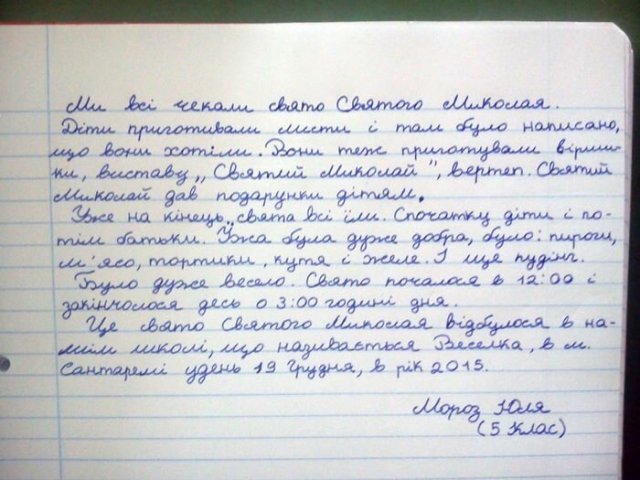 Ми всі чекали свято Святого Миколая.
Діти приготивали листи і там було написано,
що вони хотіли. Вони теж приготували вірши-
ки, виставу „Святий Миколай", вертеп. Святий
Миколай дав подарунки дітям.
Уже на кінець свята всі їли. Спочатку діти і по-
тім батьки. Їжа була дуже добра, було: пироги,
м'ясо, тортики, кутя і желе. І ще пудінг.
Було дуже весело. Свято почалося в 12:00 і
закінчолося десь о 3:00 годині дня.
Це свято Святого Миколая відбулося в на-
шім школі, що називається Веселка, в м.
Сантаремі удень 19 Грудня, в рік 2015.
Мороз Юля
(5 Клас)